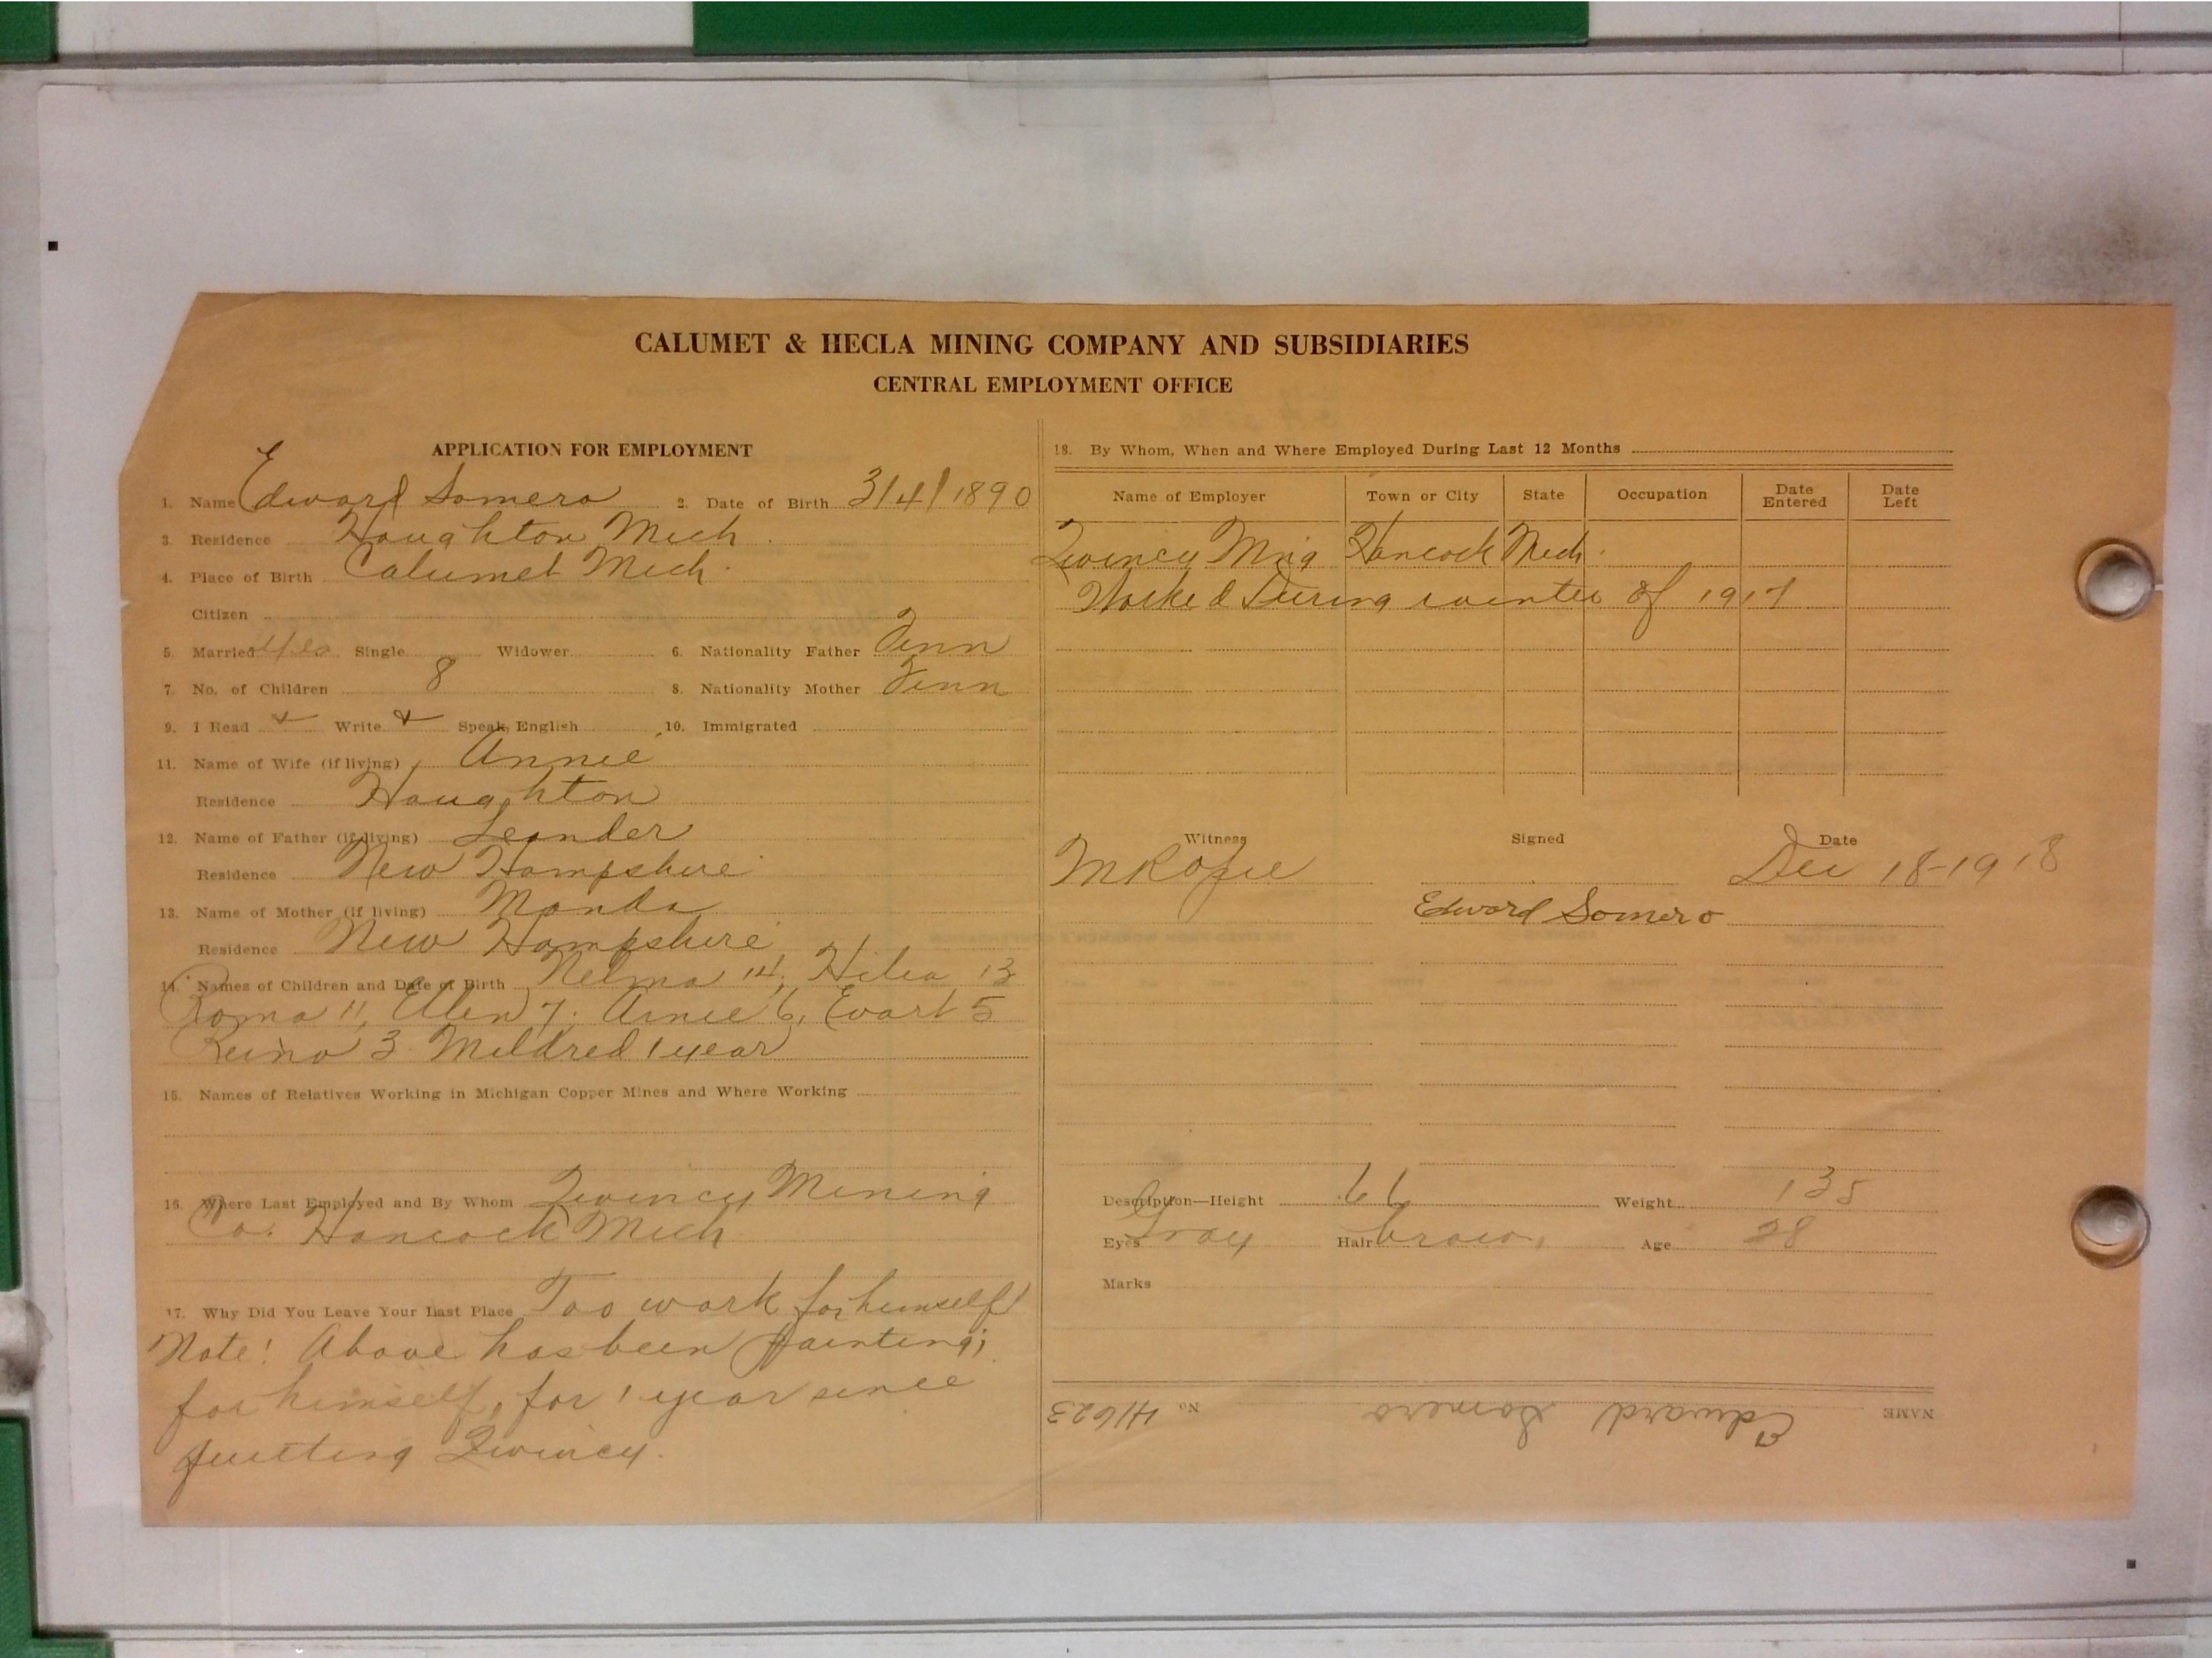 CALUMET & HECLA MINING COMPANY AND SUBSIDIARIES
CENTRAL EMPLOYMENT OFFICE
APPLICATION FOR EMPLOYMENT
1. Name Edward Somero 2. Date of Birth 3/4/1890
3. Residence Houghton Mich.
4. Place of Birth Calumet Mich.
Citizen
5. Married Yes Single Widower 6. Nationality Father Finn
7. No. of Children 8 8. Nationality Mother Finn
9. I Read Write Speak English 10. Immigrated
11. Name of Wife (if living) Annie
Residence Houghton
12. Name of Father (if living) Leander
Residence New Hampshire
13. Name of Mother (if living) Manda
Residence New Hampshire
14. Names of Children and Date of Birth 14, 13
11, 7. 6, Evart 5
Reino 3 Mildred 1 year
15. Names of Relatives Working in Michigan Copper Mines and Where Working
16. Where Last Employed and By Whom Quincy Mining
Co. Hancock Mich
17. Why Did You Leave Your Last Place Too work for himself
Note! Above has been painting;
for himself, for 1 year since
quitting Quincy.
18. By Whom, When and Where Employed During Last 12 Months
Name of Employer Town or City State Occupation Date Entered Date Left
Quincy Mng Hancock Mich.
Worked During winter of 1917
Witness Signed Date
Dec 18-1918
Edward Somero
Description—Height 66 Weight 135
Eyes Gray Hair brown Age 28
Marks
NAME Edward Somero No. 41623